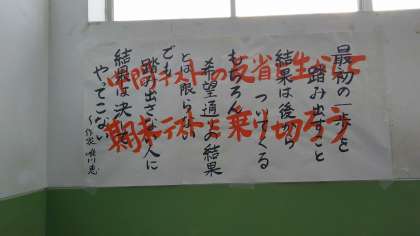 中間テストの反省を生かして
期末テストを乗り切ろう
最初の一歩を
踏み出すこと
結果は後から
ついてくる
もちろん
希望通りの結果
とは限らない
でも
踏み出さない人に
結果は決して
やってこない
(作家 唯川恵)